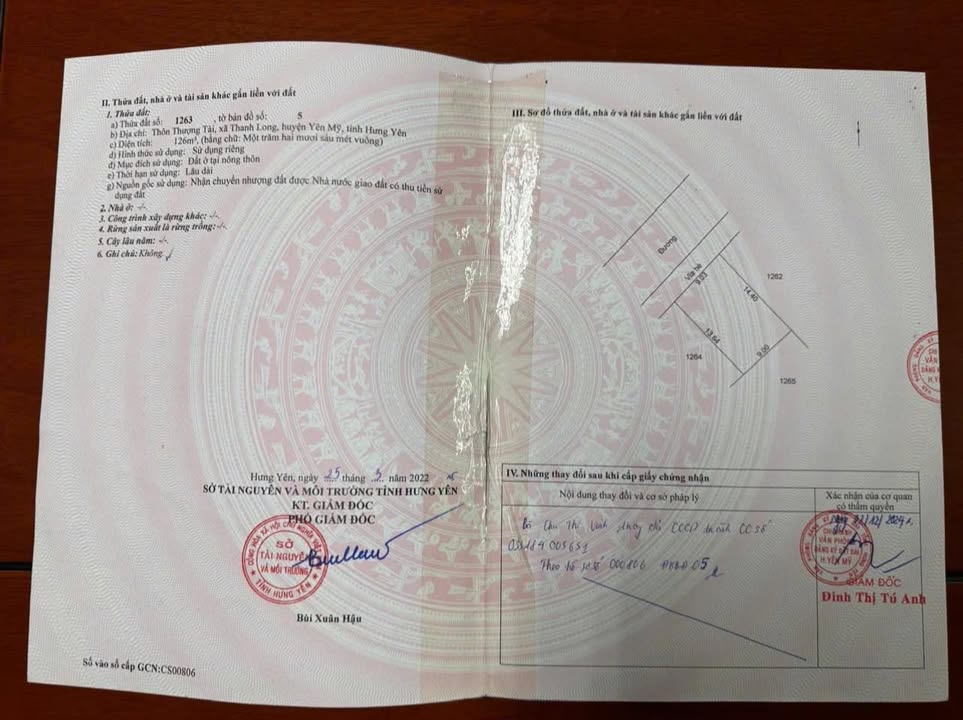 II. Thửa đất, nhà ở và tài sản khác gắn liền với đất
1. Thửa đất:
a) Thửa đất số: 1263 , tờ bản đồ số: 5
b) Địa chỉ: Thôn Thượng Tài, xã Thanh Long, huyện Yên Mỹ, tỉnh Hưng Yên
c) Diện tích: 126m², (bằng chữ: Một trăm hai mươi sáu mét vuông)
d) Hình thức sử dụng: Sử dụng riêng
đ) Mục đích sử dụng: Đất ở tại nông thôn
e) Thời hạn sử dụng: Lâu dài
g) Nguồn gốc sử dụng: Nhận chuyển nhượng đất được Nhà nước giao đất có thu tiền sử
dụng đất
2. Nhà ở: -/-
3. Công trình xây dựng khác: -/-
4. Rừng sản xuất là rừng trồng: -/-
5. Cây lâu năm: -/-
6. Ghi chú: Không
Hưng Yên, ngày 25 tháng 3 năm 2022
SỞ TÀI NGUYÊN VÀ MÔI TRƯỜNG TỈNH HƯNG YÊN
KT. GIÁM ĐỐC
PHÓ GIÁM ĐỐC
CỘNG HÒA XÃ HỘI CHỦ NGHĨA VIỆT NAM
SỞ
TÀI NGUYÊN
VÀ MÔI TRƯỜNG
TỈNH HƯNG YÊN
Bùi Xuân Hậu
Số vào sổ cấp GCN:CS00806
III. Sơ đồ thửa đất, nhà ở và tài sản khác gắn liền với đất
Đường
Vỉa hè
9.03
1262
14.40
13.64
1264
9.00
1265
IV. Những thay đổi sau khi cấp giấy chứng nhận
Nội dung thay đổi và cơ sở pháp lý
Xác nhận của cơ quan
có thẩm quyền
Bà Chu Thị
CCCD
CC số
Theo hồ sơ số 000806
12/2024
CHI NHÁNH
VĂN PHÒNG
ĐĂNG KÝ ĐẤT ĐAI
H.YÊN MỸ
GIÁM ĐỐC
Đinh Thị Tú Anh